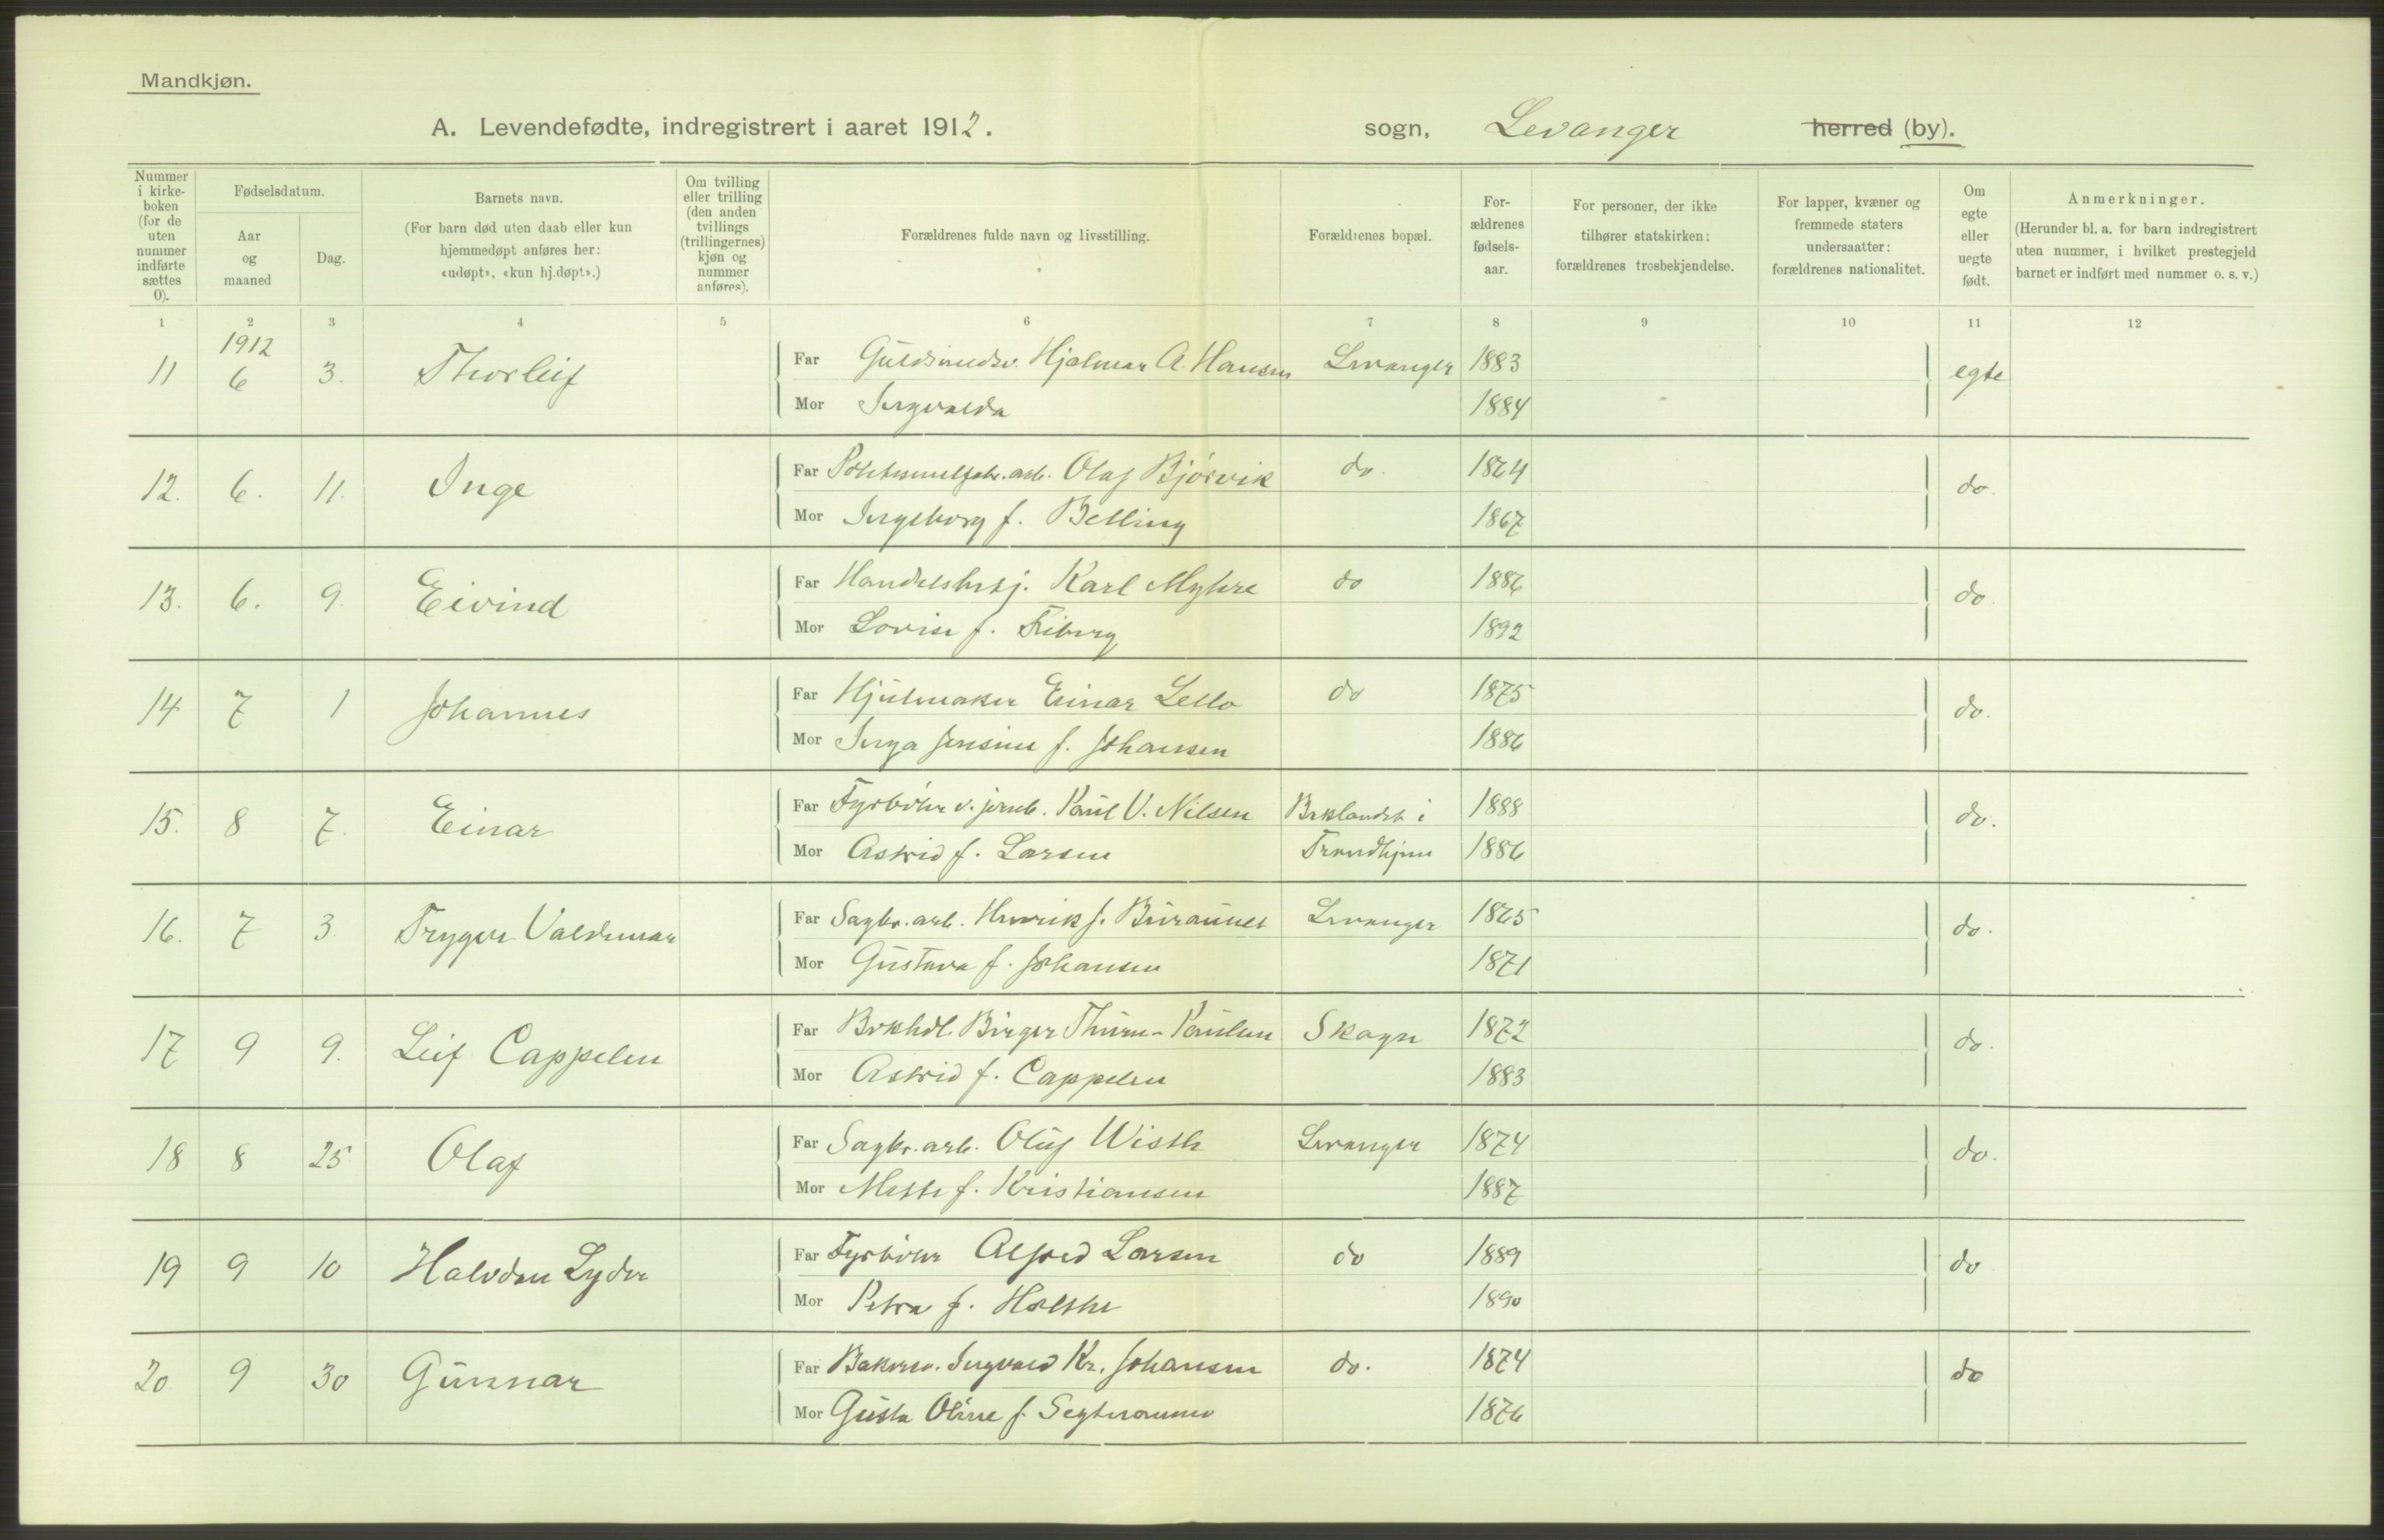 Mandkjøn.
A. Levendefødte, indregistrert i aaret 1912.
sogn, Levanger herred (by).
Nummer i kirke-boken (for de uten nummer indførte sættes 0).
Fødselsdatum.
Aar og maaned
Dag.
Barnets navn.
(For barn død uten daab eller kun
hjemmedøpt anføres her:
«udøpt», «kun hj.døpt».)
Om tvilling
eller trilling
(den anden
tvillings
(trillingernes)
kjøn og
nummer
anføres).
Forældrenes fulde navn og livsstilling.
Forældrenes bopæl.
For-
ældrenes
fødsels-
aar.
For personer, der ikke
tilhører statskirken:
forældrenes trosbekjendelse.
For lapper, kvæner og
fremmede staters
undersaatter:
forældrenes nationalitet.
Om
egte
eller
uegte
født.
Anmerkninger.
(Herunder bl. a. for barn indregistrert
uten nummer, i hvilket prestegjeld
barnet er indført med nummer o. s. v.)
1 2 3 4 5 6 7 8 9 10 11 12
1912
11 6 3. Thorleif Far Guldsmedsv. Hjalmar A. Hansen Levanger 1883 egte
Mor Ingvalda 1884
12. 6. 11. Inge Far Olaf Bjørvik do. 1864 do.
Mor Ingeborg f. Belling 1867
13. 6. 9. Eivind Far Handelsbetj. Karl Myhre do 1886 do
Mor Lovise f. Friberg 1892
14 7 1 Johannes Far Hjulmaker Einar Lello do 1875 do.
Mor Inga Jensine f. Johansen 1886
15. 8 7. Einar Far Fyrbøter v. jernb. Paul V. Nilsen Baklandet i 1888 do.
Mor Astrid f. Larsen Trondhjem 1886
16. 7 3. Trygve Valdemar Far Sagbr. arb. Henrik J. Buraunet Levanger 1865 do.
Mor Gustava f. Johansen 1871
17 9 9. Leif Cappelen Far Bokhdl. Birger Thurn-Paulsen Skogn 1872 do.
Mor Astrid f. Cappelen 1883
18 8 25. Olaf Far Sagbr. arb. Oluf Wisth Levanger 1874 do.
Mor Mette f. Kristiansen 1887
19 9 10 Halvdan Lyder Far Fyrbøter Alfred Larsen do 1889 do
Mor Petra f. Holthe 1890
20 9 30 Gunnar Far Bakersv. Ingvald Kr. Johansen do. 1874 do
Mor Gusta Oline f. 1876